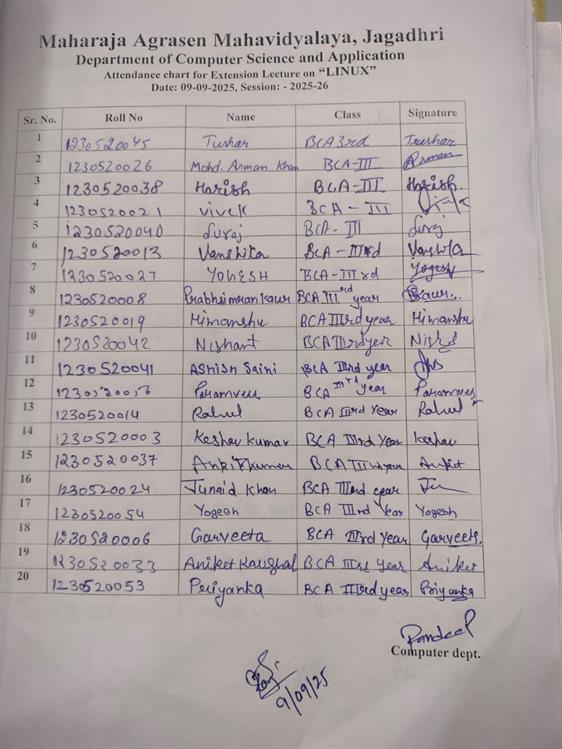 Maharaja Agrasen Mahavidyalaya, Jagadhri
Department of Computer Science and Application
Attendance chart for Extension Lecture on “LINUX”
Date: 09-09-2025, Session: - 2025-26
Sr. No. Roll No Name Class Signature
1 1230520045 Tushar BCA 3rd Tushar
2 1230520026 Mohd. Arman Khan BCA-III Arman
3 1230520038 Harish BCA-III Harish.
4 1230520021 Vivek BCA-III
5 1230520040 Suraj BCA-III Suraj
6 1230520013 Vanshika BCA-IIIrd Vanshika
7 1230520027 YOGESH BCA-III rd Yogesh
8 1230520008 Prabhsimran Kaur BCA IIIrd year
9 1230520019 Himanshu BCA IIIrd year Himanshu
10 1230520042 Nishant BCA IIIrd yer
11 1230520041 Ashish Saini BCA IIIrd year
12 BCA IIIrd year
13 1230520014 Rahul BCA IIIrd Year Rahul
14 1230520003 Keshav Kumar BCA IIIrd Year Keshav
15 1230520037 Ankit kumar BCA III rd year Ankit
16 1230520024 Junaid Khan BCA IIIrd year
17 1230520054 Yogesh BCA IIIrd Year Yogesh
18 1230520006 Garveeta BCA IIIrd Year Garveeta
19 1230520033 Aniket Kaushal BCA IIIrd Year Aniket
20 1230520053 Priyanka BCA IIIrd year Priyanka
Computer dept.
9/09/25